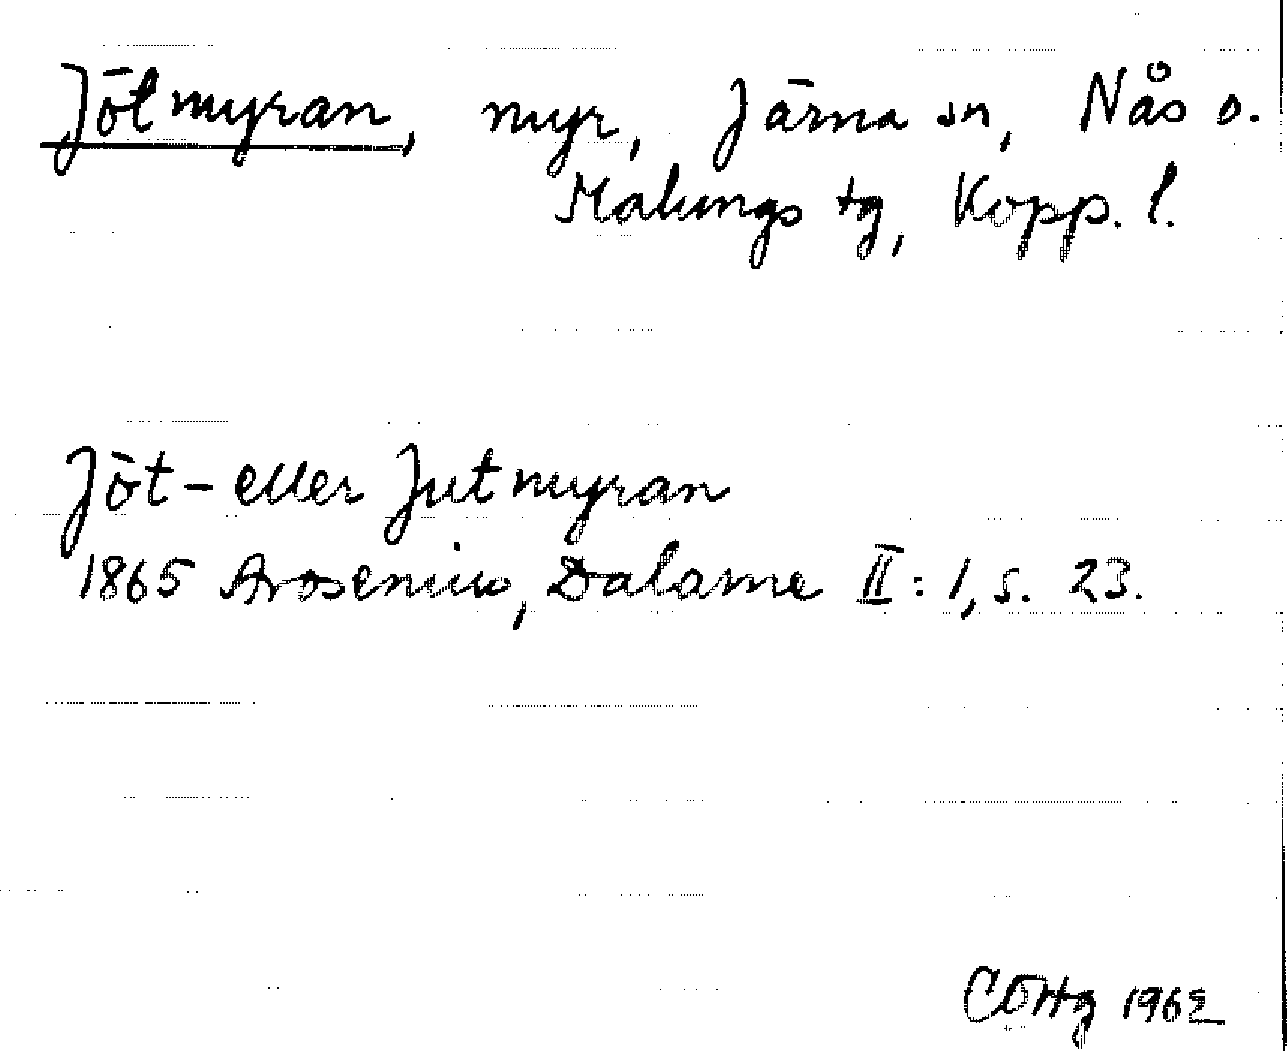 Jötmyran, myr, Järna sn, Nås o.
Malungs tg, Kopp. l.
Jöt- eller Jutmyran
1865 Arosenius, Dalarne II: 1, s. 23.
1962